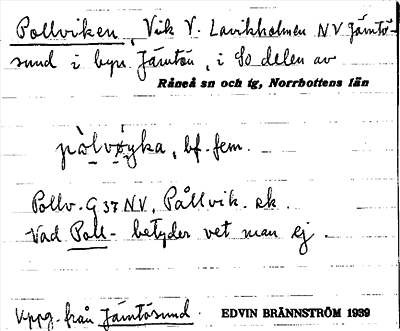 Pollviken, Vik V. Lavikholmen NV Jämtö-
sund i byn Jämtön, i So delen av
Råneå sn och tg, Norrbottens län
pòlvǿyka, bf. fem.
Pollv. G 37 NV, Pållvik. ek.
Vad Poll- betyder vet man ej.
Uppg. från Jämtösund.
EDVIN BRÄNNSTRÖM 1939